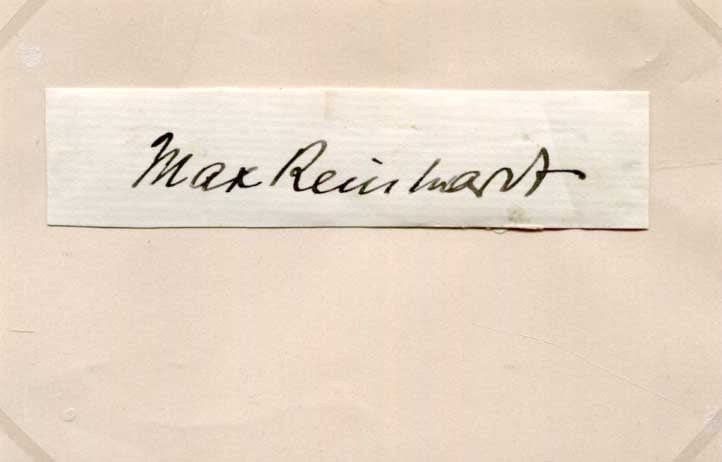 Max Reinhardt